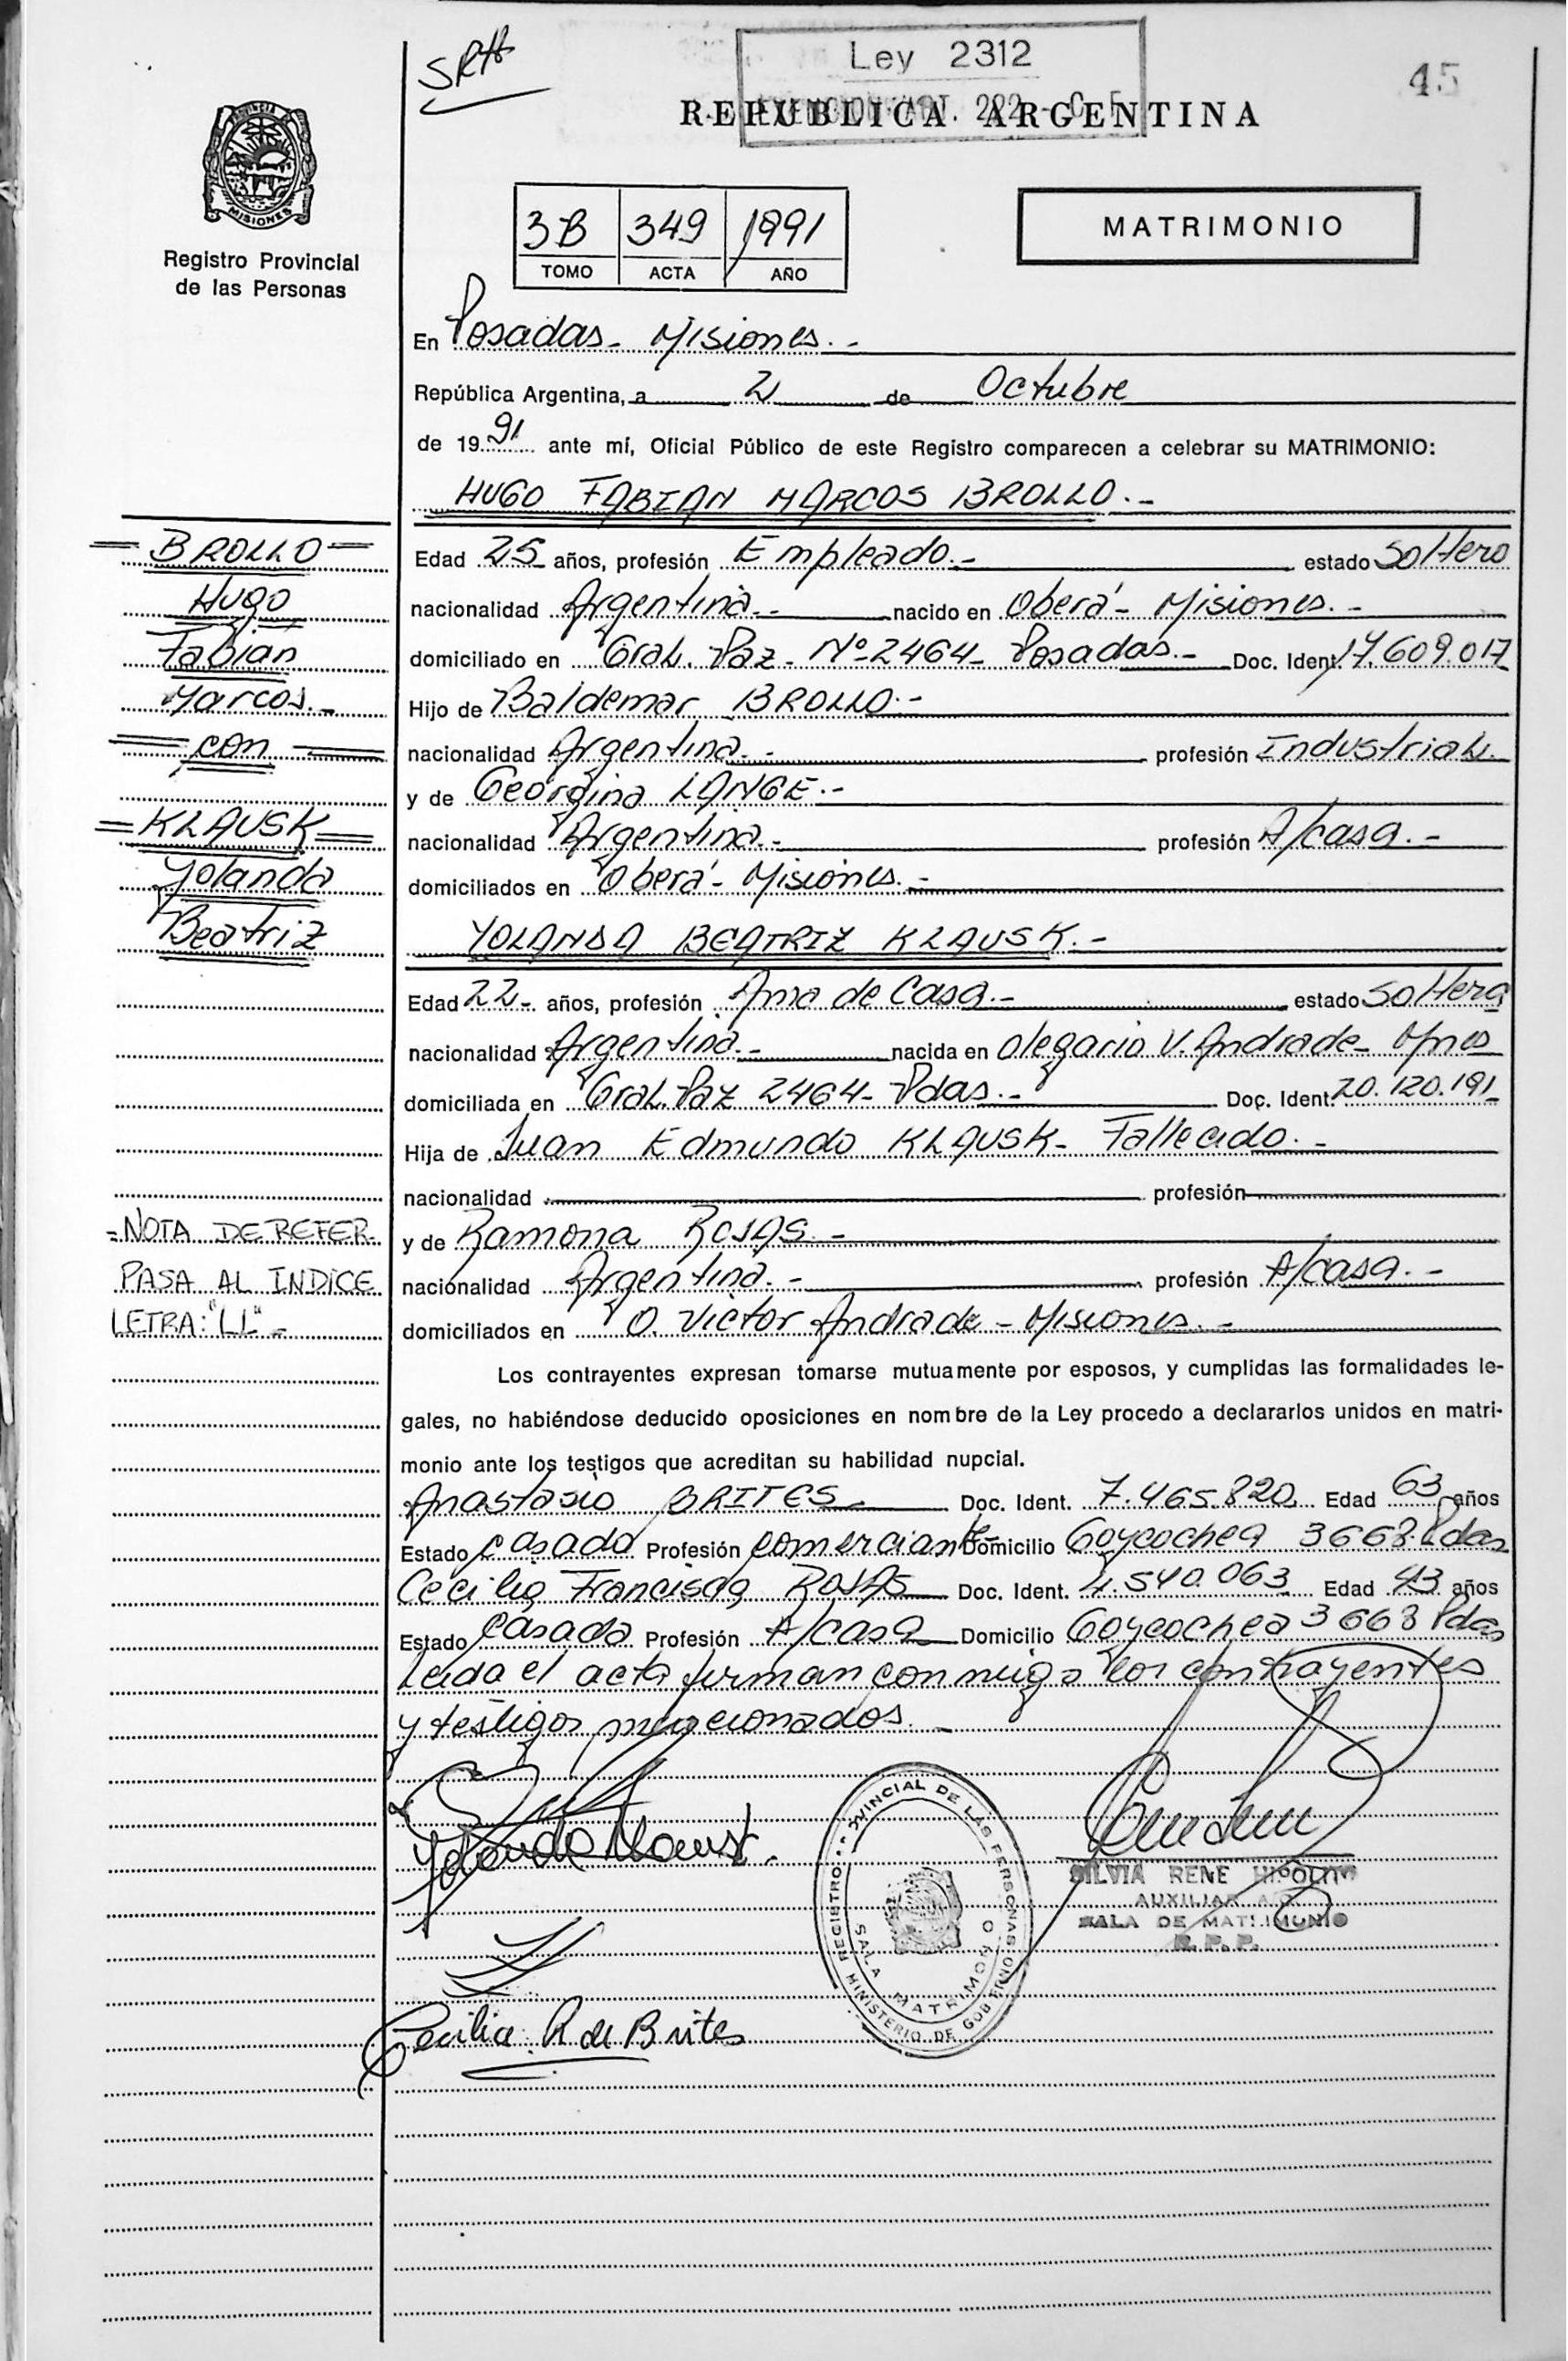 SRH
Ley 2312
45
REPUBLICA ARGENTINA
MISIONES
Registro Provincial
de las Personas
3B 349 1991
TOMO ACTA AÑO
MATRIMONIO
En Posadas - Misiones.-
República Argentina, a 2 de Octubre
de 1991 ante mí, Oficial Público de este Registro comparecen a celebrar su MATRIMONIO:
HUGO FABIAN MARCOS BROLLO.-
Edad 25 años, profesión Empleado.- estado Soltero
nacionalidad Argentina.- nacido en Oberá - Misiones.-
domiciliado en Gral. Paz - Nº 2464 - Posadas.- Doc. Ident. 17.609.017
Hijo de Baldemar BROLLO.-
nacionalidad Argentina.- profesión Industrial.
y de Georgina LANGE.-
nacionalidad Argentina.- profesión A/casa.-
domiciliados en Oberá - Misiones.-
YOLANDA BEATRIZ KLAUSK.-
Edad 22- años, profesión Ama de Casa.- estado Soltera
nacionalidad Argentina.- nacida en Olegario V. Andrade - Mnes
domiciliada en Gral. Paz 2464 - Pdas.- Doc. Ident. 20.120.191-
Hija de Juan Edmundo KLAUSK - Fallecido.-
nacionalidad profesión
y de Ramona ROJAS.-
nacionalidad Argentina.- profesión A/casa.-
domiciliados en O. Victor Andrade - Misiones.-
Los contrayentes expresan tomarse mutuamente por esposos, y cumplidas las formalidades le-
gales, no habiéndose deducido oposiciones en nombre de la Ley procedo a declararlos unidos en matri-
monio ante los testigos que acreditan su habilidad nupcial.
Anastasio BRITES- Doc. Ident. 7.465.820 Edad 63 años
Estado Casado Profesión Comerciante- Domicilio Goycochea 3668. Pdas
Cecilia Francisca ROJAS- Doc. Ident. 4.540.063 Edad 43 años
Estado Casada Profesión A/casa- Domicilio Goycochea 3668 Pdas
Leida el acta firman conmigo los contrayentes
y testigos mencionados.-
Yolanda Klausk.
Cecilia R de Brites
REGISTRO PROVINCIAL DE LAS PERSONAS
MINISTERIO DE GOBIERNO
SALA MATRIMONIO
SILVIA RENE HIPOLITO
AUXILIAR
SALA DE MATRIMONIO
R. P. P.
= BROLLO =
Hugo
Fabian
Marcos.-
= con =
= KLAUSK =
Yolanda
Beatriz
=NOTA DE REFER
PASA AL INDICE
LETRA: "LL"-